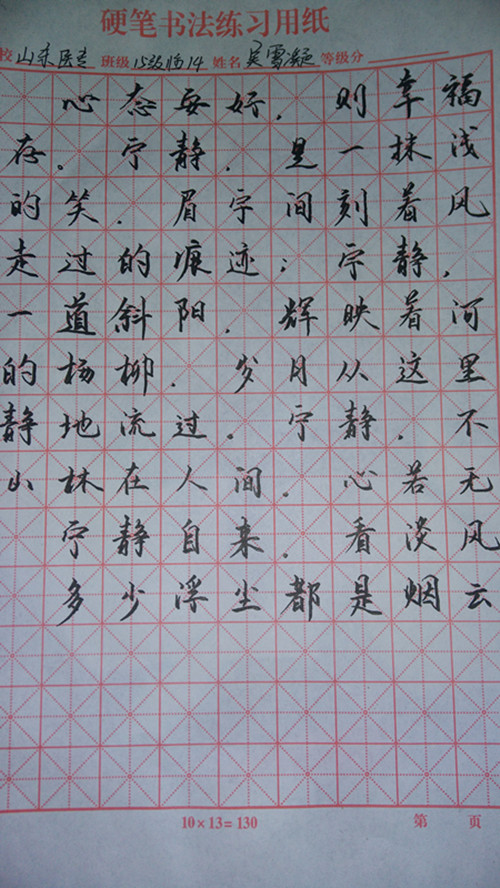 硬笔书法练习用纸
校 山东医专 班级 15级临14 姓名 吴雪凝 等级分
心态安好，则幸福
存。宁静，是一抹浅
的笑，眉宇间刻着风
走过的痕迹；宁静，
一道斜阳，辉映着河
的杨柳，岁月从这里
静地流过。宁静，不
山林在人间，心若无
宁静自来，看淡风
多少浮尘都是烟云
10×13=130 第 页